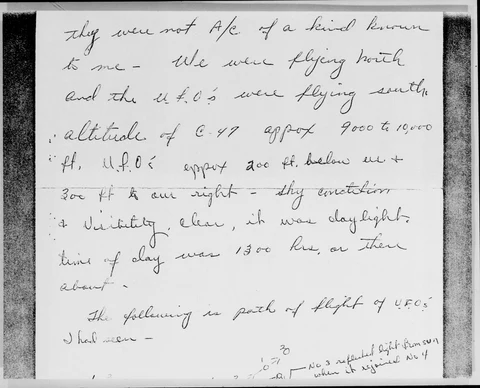 they were not A/c of a kind known
to me - We were flying north
and the U.F.O's were flying south,
altitude of C-47 appox 9000 to 10,000
ft. U.F.O's appox 200 ft. below us +
300 ft to our right - Sky condition
+ Visibility, clear, it was daylight.
time of day was 1300 hrs. or there
about -
The following is path of flight of U.F.O's
I had seen -
No 3 reflected light from sun
when it rejoined No 4